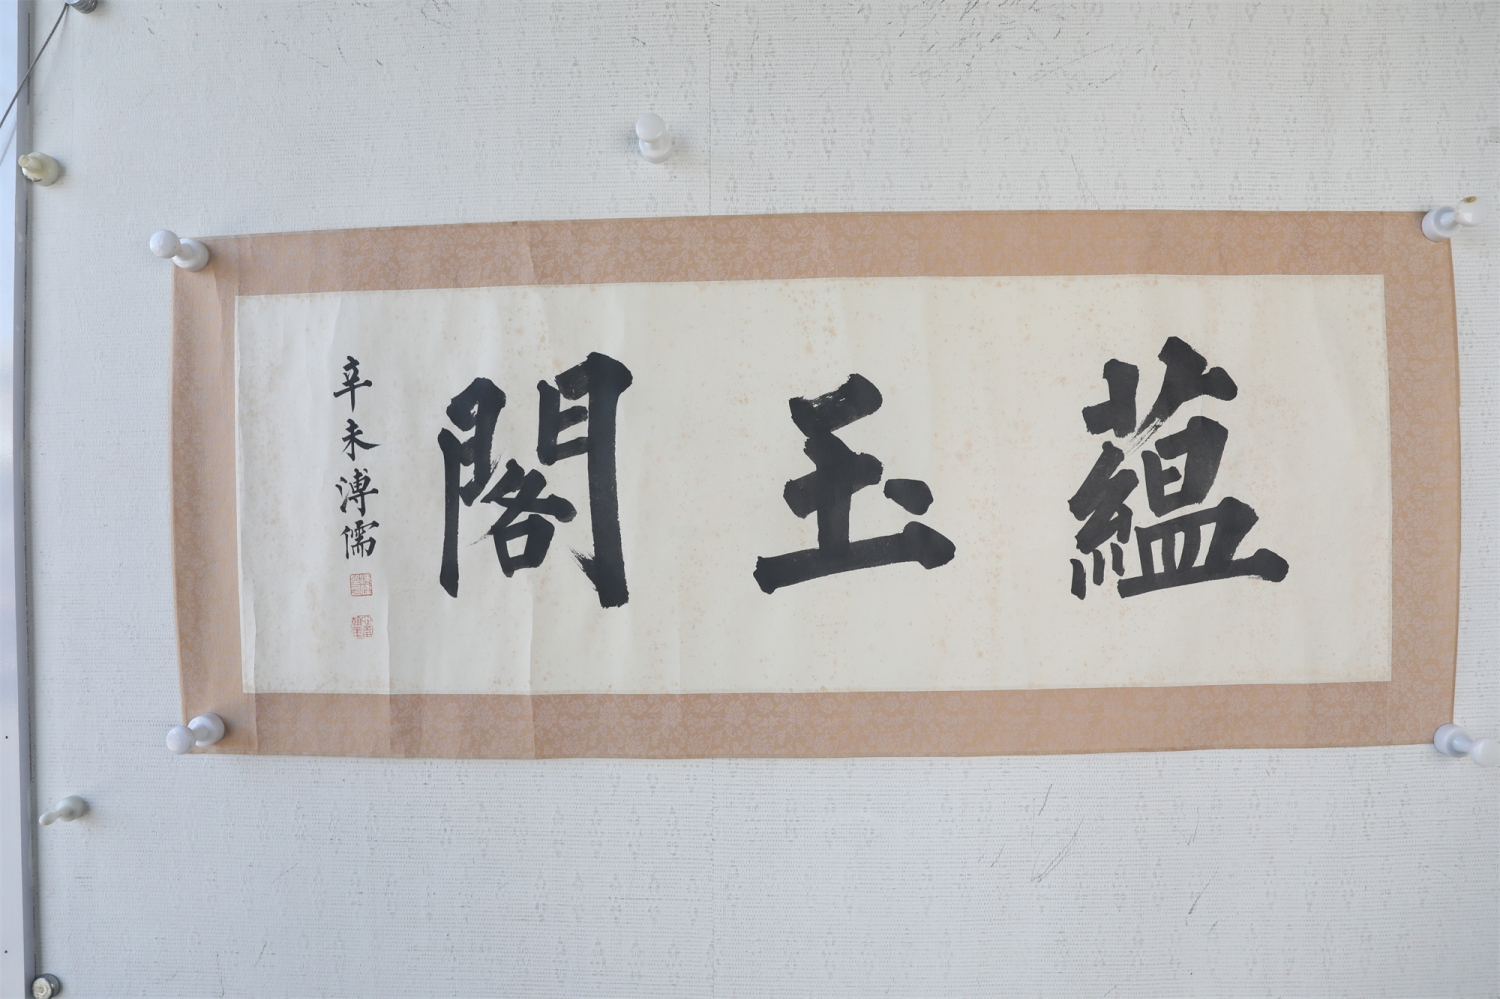 蘊玉閣
辛未溥儒